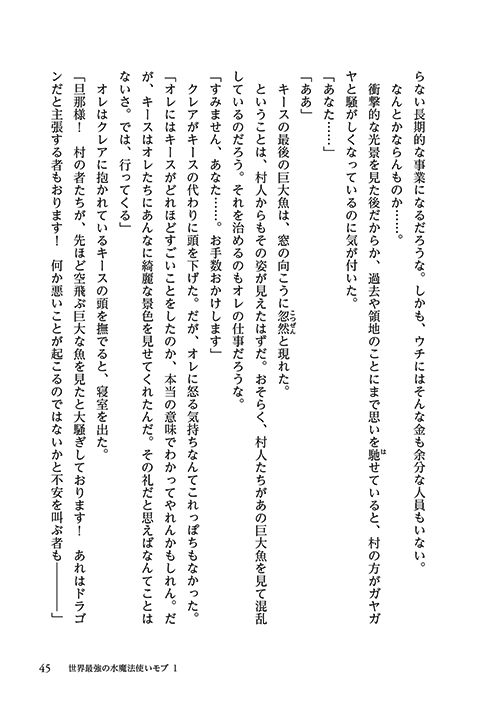 らない長期的な事業になるだろうな。しかも、ウチにはそんな金も余分な人員もいない。
なんとかならんものか……。
衝撃的な光景を見た後だからか、過去や領地のことにまで思いを馳せていると、村の方がガヤガ
ヤと騒がしくなっているのに気が付いた。
「あなた……」
「ああ」
キースの最後の巨大魚は、窓の向こうに忽然と現れた。
ということは、村人からもその姿が見えたはずだ。おそらく、村人たちがあの巨大魚を見て混乱
しているのだろう。それを治めるのもオレの仕事だろうな。
「すみません、あなた……。お手数おかけします」
クレアがキースの代わりに頭を下げた。だが、オレに怒る気持ちなんてこれっぽちもなかった。
「オレにはキースがどれほどすごいことをしたのか、本当の意味でわかってやれんかもしれん。だ
が、キースはオレたちにあんなに綺麗な景色を見せてくれたんだ。その礼だと思えばなんてことは
ないさ。では、行ってくる」
オレはクレアに抱かれているキースの頭を撫でると、寝室を出た。
「旦那様！　村の者たちが、先ほど空飛ぶ巨大な魚を見たと大騒ぎしております！　あれはドラゴ
ンだと主張する者もおります！　何か悪いことが起こるのではないかと不安を叫ぶ者も――――」
45　世界最強の水魔法使いモブ 1